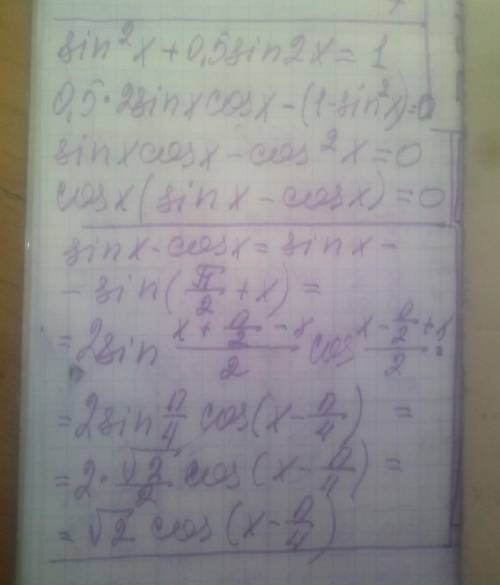 sin²x + 0,5sin2x = 1
0,5·2sinxcosx-(1-sin²x)=0
sinxcosx-cos²x=0
cosx(sinx-cosx)=0
sinx-cosx = sinx-
-sin(π/2+x) =
=2sin (x+π/2-x)/2 cos (x-π/2+x)/2 =
=2sin π/4 cos(x-π/4) =
=2·√2/2 cos(x-π/4) =
=√2 cos(x-π/4)